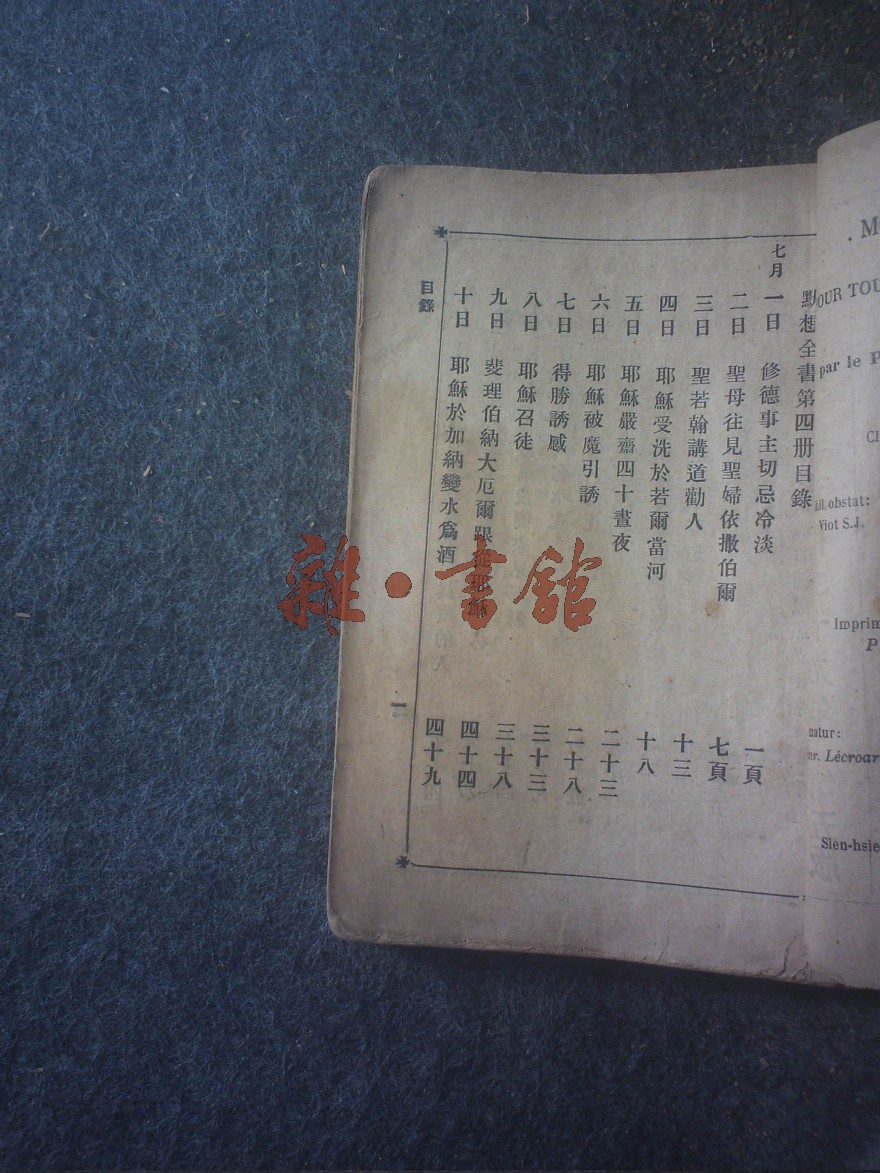 點想全書第四册目錄
七月
一日 修德事主切忌冷淡 一頁
二日 聖母往見聖婦依撒伯爾 七頁
三日 聖若翰講道勸人 十三
四日 耶穌受洗於若爾當河 十八
五日 耶穌嚴齋四十晝夜 二十三
六日 耶穌被魔引誘 二十八
七日 得勝誘感 三十三
八日 耶穌召徒 三十八
九日 斐理伯納大厄爾跟從耶穌 四十四
十日 耶穌於加納變水爲酒 四十九
目錄
一
雜·書館
M
OUR TOU
par le P
obstat:
Viot S.J.
Imprim
P
natur:
Lécroar
Sien-hsie